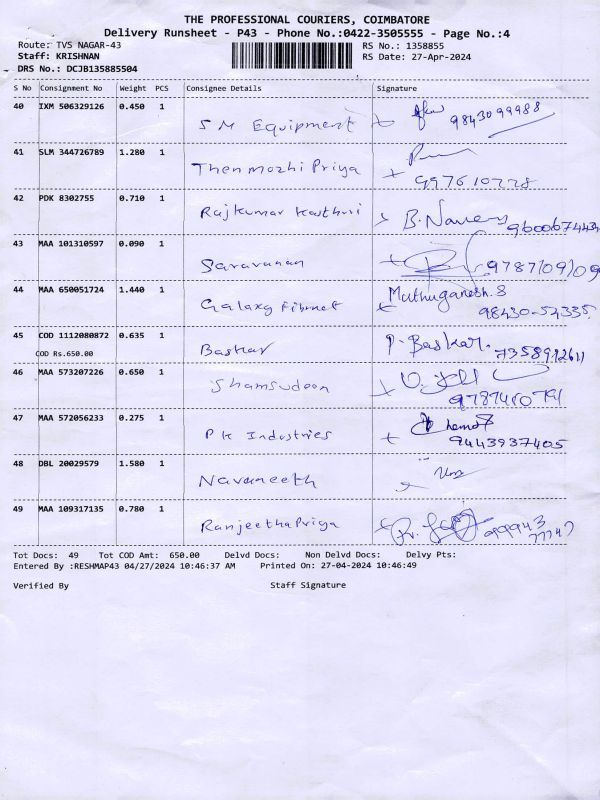 THE PROFESSIONAL COURIERS, COIMBATORE
Delivery Runsheet - P43 - Phone No.:0422-3505555 - Page No.:4
Route: TVS NAGAR-43 RS No.: 1358855
Staff: KRISHNAN RS Date: 27-Apr-2024
DRS No.: DCJB135885504
S No Consignment No Weight PCS Consignee Details Signature
40 IXM 506329126 0.450 1 S M Equipment 9843099988
41 SLM 344726789 1.280 1 Thenmozhi Priya 9976107278
42 PDK 8302755 0.710 1 Rajkumar Kasthuri B. 9600674434
43 MAA 101310597 0.090 1 Saravanan 9787109109
44 MAA 650051724 1.440 1 Galaxy Fibnet Muthuganesh.S
98430-54335
45 COD 1112080872 0.635 1 Baskar P. Baskar. 7358912611
COD Rs.650.00
46 MAA 573207226 0.650 1 Shamsudeen
9787410791
47 MAA 572056233 0.275 1 P K Industries
9443937405
48 DBL 20029579 1.580 1 Navaneeth
49 MAA 109317135 0.780 1 RanjeethaPriya 99943
77747
Tot Docs: 49 Tot COD Amt: 650.00 Delvd Docs: Non Delvd Docs: Delvy Pts:
Entered By :RESHMAP43 04/27/2024 10:46:37 AM Printed On: 27-04-2024 10:46:49
Verified By Staff Signature